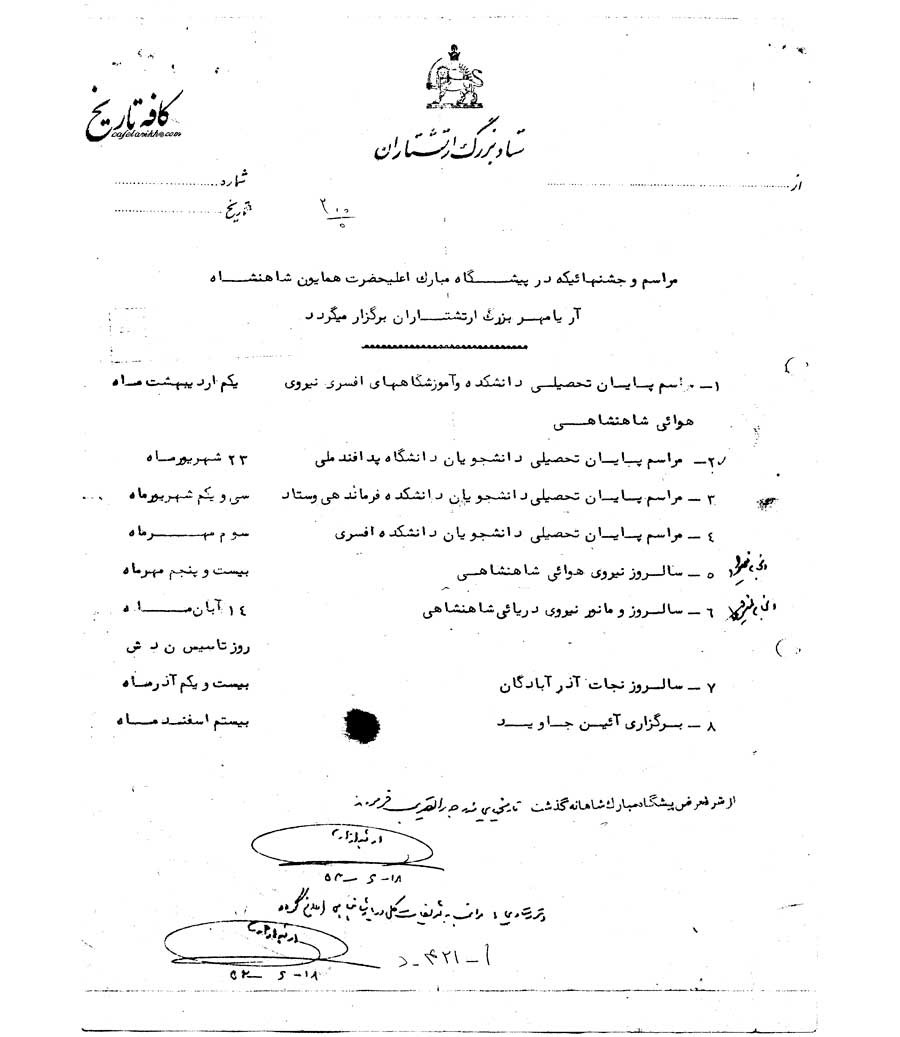 کافه تاریخ
cafetarikh.com
ستاد بزرگ ارتشتاران
از
شماره
تاریخ
مراسم و جشنهائیکه در پیشگاه مبارك اعلیحضرت همایون شاهنشاه
آریامهر بزرگ ارتشتاران برگزار میگردد
۱ـ مراسم پایان تحصیلی دانشکده وآموزشگاههای افسری نیروی یکم اردیبهشت ماه
هوائی شاهنشاهی
۲ـ مراسم پایان تحصیلی دانشجویان دانشگاه پدافند ملی ۲۳ شهریورماه
۳ ـ مراسم پایان تحصیلی دانشجویان دانشکده فرماندهی وستاد سی و یکم شهریورماه
٤ ـ مراسم پایان تحصیلی دانشجویان دانشکده افسری سوم مهرماه
۵ ـ سالروز نیروی هوائی شاهنشاهی بیست و پنجم مهرماه
۶ ـ سالروز و مانور نیروی دریائی شاهنشاهی ۱٤ آبان ماه
روز تاسیس ن د ش
۷ ـ سالروز نجات آذرآبادگان بیست و یکم آذرماه
۸ ـ برگزاری آئین جاوید بیستم اسفند ماه
از شرفعرض پیشگاه مبارك شاهانه گذشت
۱۸-۶-۵۲
۱۸-۶-۵۲